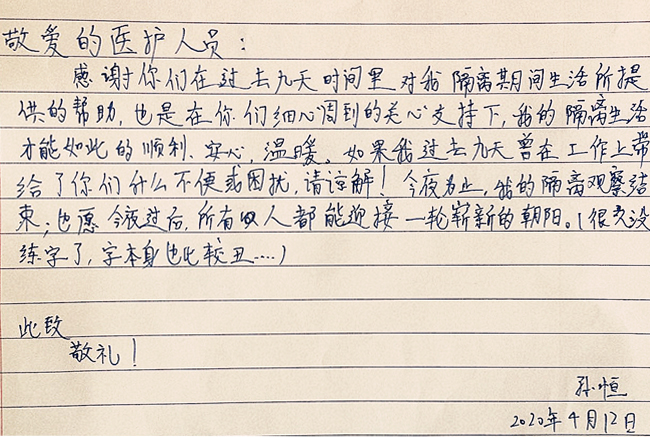 敬爱的医护人员：
感谢你们在过去九天时间里对我隔离期间生活所提
供的帮助，也是在你们细心周到的关心支持下，我的隔离生活
才能如此的顺利、安心，温暖。如果我过去九天曾在工作上带
给了你们什么不便或困扰，请谅解！今夜为止，我的隔离观察结
束；也愿今夜过后，所有人都能迎接一轮崭新的朝阳。（很久没
练字了，字本身也比较丑……）
此致
敬礼！
孙恒
2020年4月12日